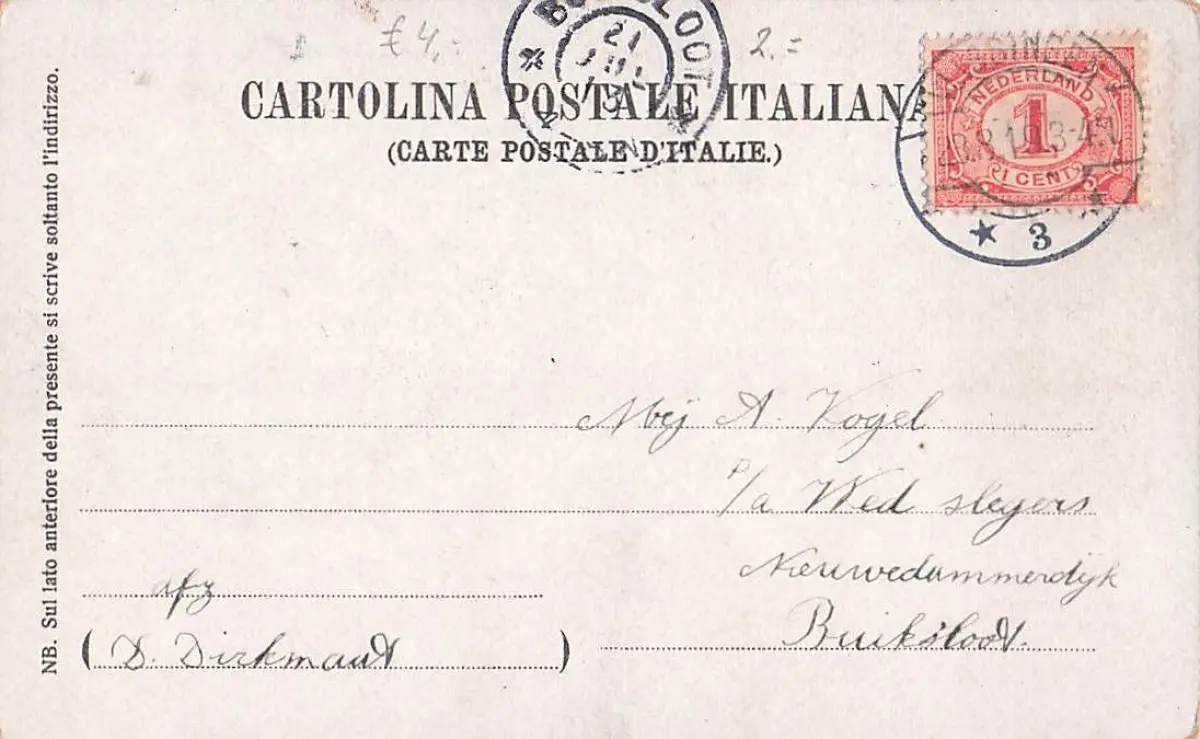 £ 4,-
2.=
BUIKSLOOT
21
JUL
CARTOLINA POSTALE ITALIANA
(CARTE POSTALE D'ITALIE.)
NEDERLAND
1
CENT
3
NB. Sul lato anteriore della presente si scrive soltanto l'indirizzo.
Mej A. Vogel
p/a Wed slegers
Nieuwedammerdijk
Buiksloot.
afz
( D. Dirkmaat )